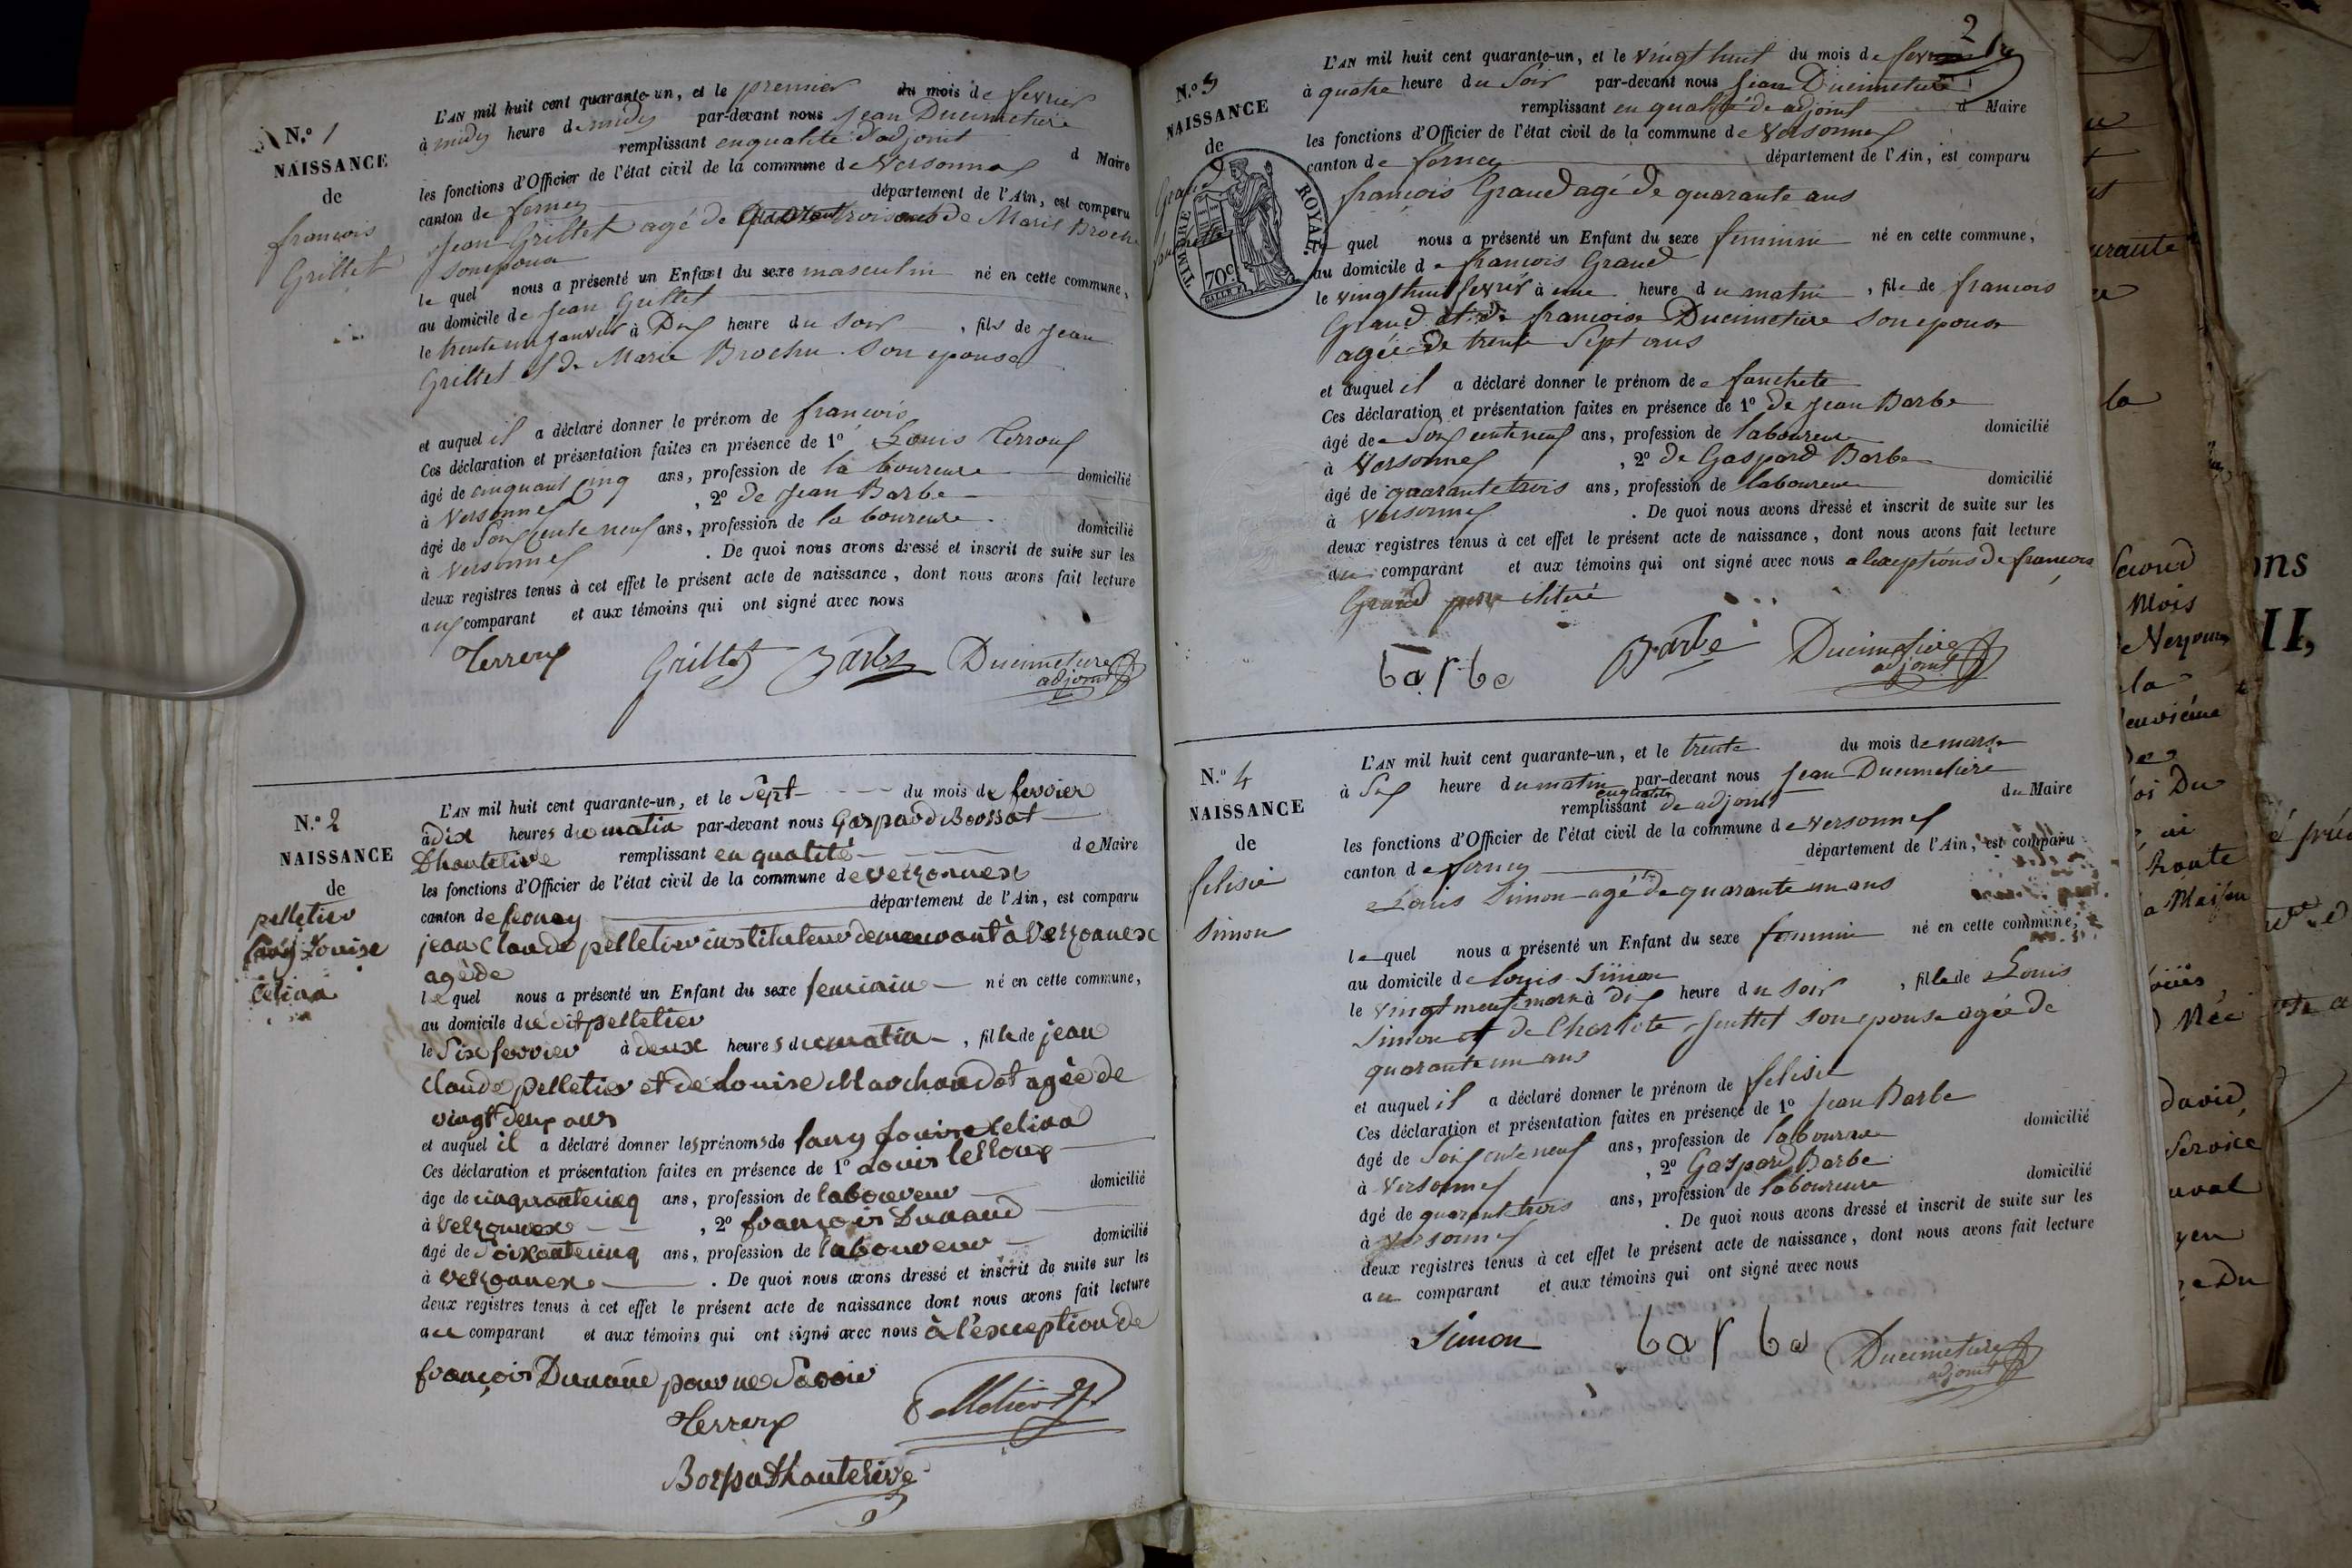 N.º 1
NAISSANCE
de
françois
Grillet
L'AN mil huit cent quarante-un, et le premier du mois de fevrier
à midy heure de midy par-devant nous Jean Ducimetiere
remplissant enqualité d'adjoint d Maire
les fonctions d'Officier de l'état civil de la commune de Versonnex
canton de ferney département de l'Ain, est comparu
Jean Grillet agé de trois ans de Marie Brochu
son epoux
le quel nous a présenté un Enfant du sexe masculin né en cette commune,
au domicile de Jean Grillet
le trente un janvier à Dix heure du soir , fils de Jean
Grillet et de Marie Brochu son epouse
et auquel il a déclaré donner le prénom de françois
Ces déclaration et présentation faites en présence de 1º Louis
âgé de cinquant cinq ans, profession de la boureure domicilié
à Versonnex , 2º de Jean Barbe
âgé de Soixcente neuf ans, profession de la boureure domicilié
à Versonnex . De quoi nous avons dressé et inscrit de suite sur les
deux registres tenus à cet effet le présent acte de naissance, dont nous avons fait lecture
aux comparant et aux témoins qui ont signé avec nous
Grillet Barbe Ducimetiere
adjoint
N.º 2
NAISSANCE
de
pelletier
fany Louise
Celina
L'AN mil huit cent quarante-un, et le Sept du mois de fevrier
à dix heures du matin par-devant nous Gaspard Bossat
Dhauterive remplissant en qualité de Maire
les fonctions d'Officier de l'état civil de la commune de versonnex
canton de ferney département de l'Ain, est comparu
jean Claude pelletier instituteur demeurant à Versonnex
agé de
le quel nous a présenté un Enfant du sexe feminin né en cette commune,
au domicile du dit pelletier
le Six fevrier à deux heures du matin , fille de jean
claude pelletier et de Louise Marchandot agée de
vingt deux ans
et auquel il a déclaré donner les prénoms de fany Louise Celina
Ces déclaration et présentation faites en présence de 1º Louis
âgé de cinquante cinq ans, profession de laboureur domicilié
à versonnex , 2º françois Dunand
âgé de Soixante cinq ans, profession de laboureur domicilié
à versonnex . De quoi nous avons dressé et inscrit de suite sur les
deux registres tenus à cet effet le présent acte de naissance dont nous avons fait lecture
au comparant et aux témoins qui ont signé avec nous à l'exception de
françois Dunand pour ne Savoir
Pelletier
Dhauterive
2
N.º 3
NAISSANCE
de
Grand
fanchette
TIMBRE ROYAL
70c
L'AN mil huit cent quarante-un, et le vingt huit du mois de fevrier
à quatre heure du Soir par-devant nous Jean Ducimetiere
remplissant en qualité de adjoint d Maire
les fonctions d'Officier de l'état civil de la commune de Versonnex
canton de ferney département de l'Ain, est comparu
françois Grand agé de quarante ans
le quel nous a présenté un Enfant du sexe feminin né en cette commune,
au domicile de francois Grand
le vingt huit fevrir à une heure du matin , file de francois
Grand et de francoise Ducimetiere son epouse
agée de trente Sept ans
et auquel il a déclaré donner le prénom de fanchete
Ces déclaration et présentation faites en présence de 1º de Jean Barbe
âgé de Soix cente neuf ans, profession de laboureur domicilié
à Versonnex , 2º de Gaspard Barbe
âgé de quarante trois ans, profession de laboureur domicilié
à Versonnex . De quoi nous avons dressé et inscrit de suite sur les
deux registres tenus à cet effet le présent acte de naissance, dont nous avons fait lecture
au comparant et aux témoins qui ont signé avec nous a lexceptions de francois
Grand iliteré
barbe Barbe Ducimetiere
adjoint
N.º 4
NAISSANCE
de
felisie
Simon
L'AN mil huit cent quarante-un, et le trente du mois de mars
à Six heure du matin par-devant nous Jean Ducimetiere
remplissant enqualité de adjoint du Maire
les fonctions d'Officier de l'état civil de la commune de versonnex
canton de ferney département de l'Ain, est comparu
Louis Simon agé de quarante un ans
le quel nous a présenté un Enfant du sexe feminin né en cette commune,
au domicile de Louis Simon
le vingt neuf mars à dix heure du soir , fille de Louis
Simon et de Charlote son epouse agée de
quarante un ans
et auquel il a déclaré donner le prénom de felisie
Ces déclaration et présentation faites en présence de 1º Jean Barbe
âgé de Soix cente neuf ans, profession de laboureur domicilié
à Versonnex , 2º Gaspard Barbe
âgé de quarant trois ans, profession de laboureure domicilié
à Versonnex . De quoi nous avons dressé et inscrit de suite sur les
deux registres tenus à cet effet le présent acte de naissance, dont nous avons fait lecture
au comparant et aux témoins qui ont signé avec nous
Simon barbe Ducimetiere
adjoint